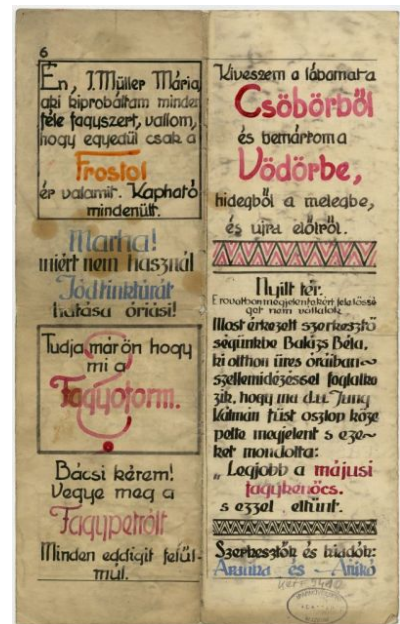 6
Én, J. Müller Mária,
aki kipróbáltam minden
féle fagyszert, vallom,
hogy egyedül csak a
Frostol
ér valamit. Kapható
mindenütt.
Marha!
miért nem használ
Jódtinkturát
hatása óriási!
Tudja már ön hogy
mi a
Fagyoform.
?
Bácsi kérem!
Vegye meg a
Fagypetrólt
Minden eddigit felül-
múl.
Kiveszem a lábamat a
Csöbörből
és bemártom a
Vödörbe,
hidegből a melegbe,
és ujra előlről.
Nyílt tér.
E rovatban megjelentekért felelőssé
get nem vállalok
Most érkezett szerkesztő
ségünkbe Bakizs Béla,
ki otthon üres óráiban~
szellemidézéssel foglalko
zik, hogy ma d.u. Jung
Kálmán füst oszlop köze
pette megjelent s eze~
ket mondotta:
„Legjobb a májusi
fagykenőcs.
s ezzel eltünt.
Szerkesztők és kiadók:
Annuka és Anikó